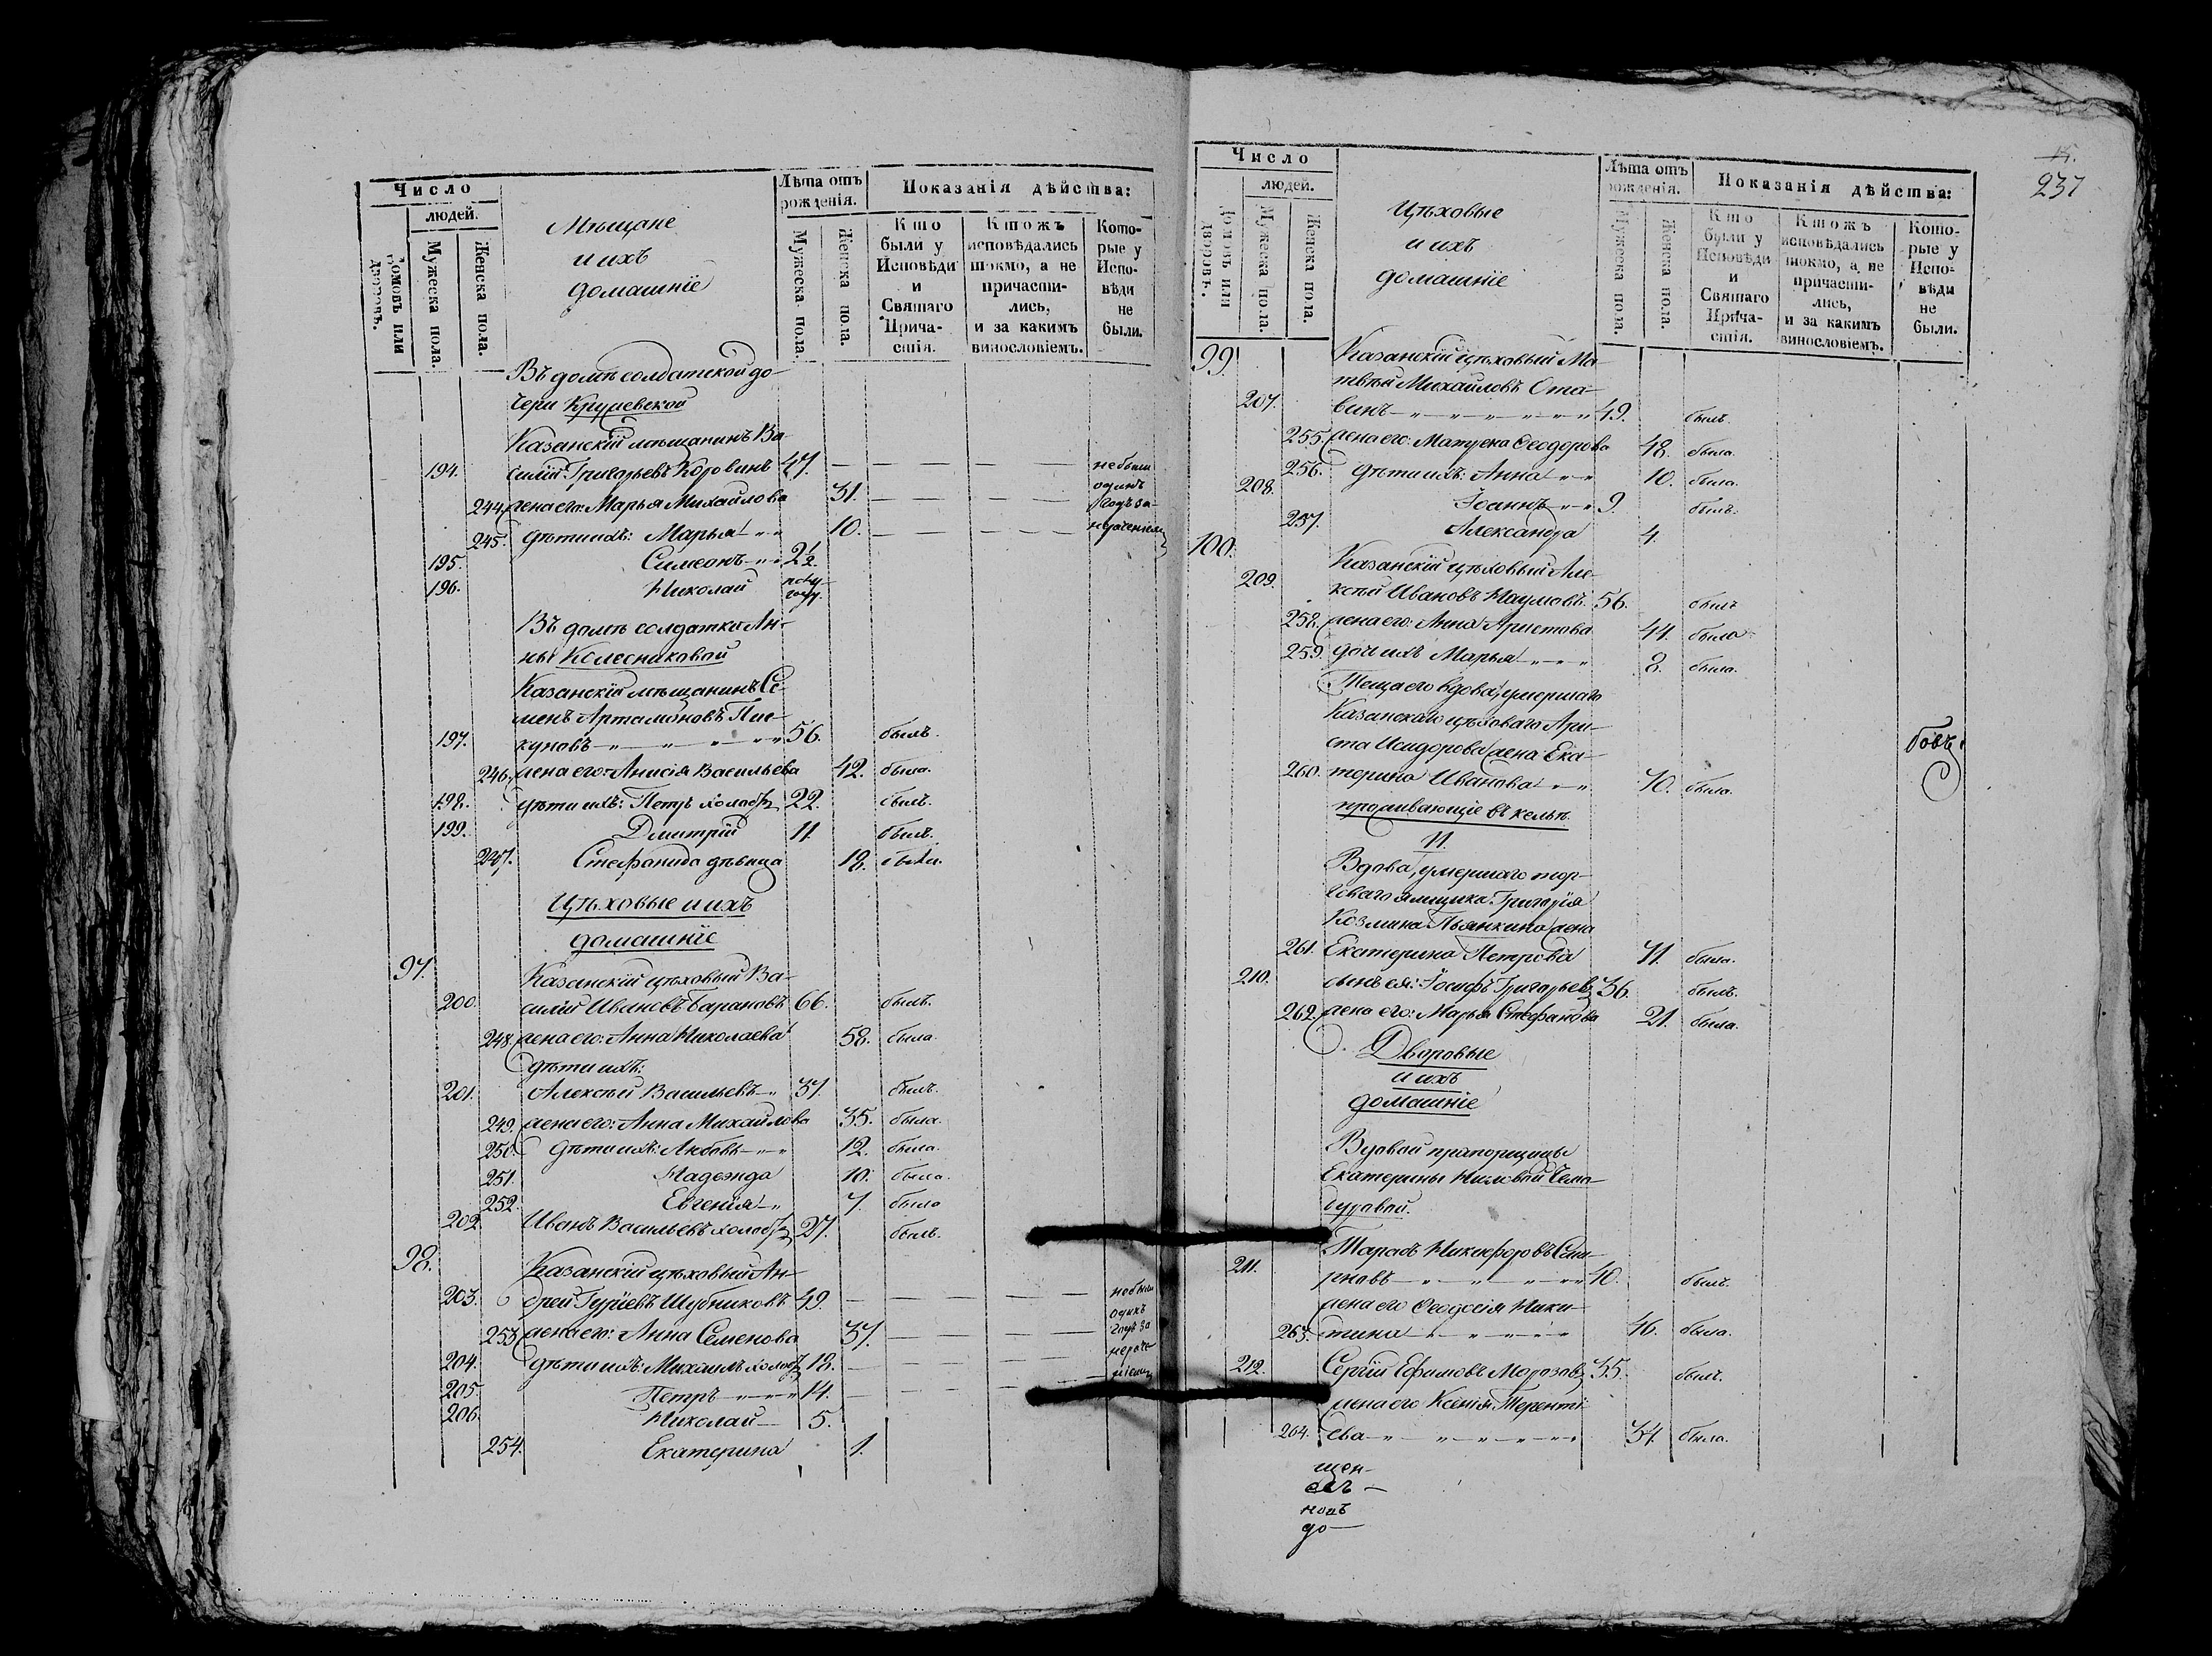 Число
людей.
Домовъ или дворовъ.
Мужеска пола.
Женска пола.
Мѣщане
и ихъ
домашніе
Лѣта отъ рожденія.
Мужеска пола.
Женска пола.
Показанія дѣйства:
Кто были у Исповѣди и Святаго Прича-стія.
Ктожъ исповѣдались токмо, а не причасти-лись, и за какимъ винословіемъ.
Кото-рые у Испо-вѣди не были.
Въ домѣ солдатской до-
чери
Казанскій мѣщанинъ Ва-
194. силій Григорьевъ Коровинъ 47. не были
244. жена его: Марья Михайлова 31. одинъ годъ за
245. дѣти ихъ: Марья 10. нерачениемъ
195. Симеонъ 2 1/2
196. Николай полу году.
Въ домѣ солдатки Ан-
ны Колесниковой
Казанскій мѣщанинъ Се-
менъ Артамоновъ Пис-
197. куновъ 56. былъ.
246. жена его: Анисія Васильева 42. была.
198. дѣти ихъ: Петръ холостъ 22. былъ.
199. Дмитрій 11 былъ.
247. Стефанида дѣвица 18. была.
Цѣховые и ихъ
домашніе
97. Казанскій цѣховый Ва-
200. силій Ивановъ Барановъ 66. былъ.
248. жена его: Анна Николаева 58. была
дѣти ихъ:
201. Алексѣй Васильевъ 37. былъ.
249. жена его: Анна Михайлова 35. была.
250. дѣти ихъ: Любовь 12. была.
251. Надежда 10. была.
252. Евгенія 7. была
202. Иванъ Васильевъ холостъ 27. былъ.
98. Казанскій цѣховый Ан-
203. дрей Гурьевъ Шубниковъ 49. не были
253. жена его: Анна Семенова 37. одинъ годъ за
204. дѣти ихъ: Михаилъ холостъ 18. нераче-
205. Петръ 14. ніемъ
206. Николай 5.
254. Екатерина 1.
15.
237
Число
людей.
Домовъ или дворовъ.
Мужеска пола.
Женска пола.
Цѣховые
и ихъ
домашніе
Лѣта отъ рожденія.
Мужеска пола.
Женска пола.
Показанія дѣйства:
Кто были у Исповѣди и Святаго Прича-стія.
Ктожъ исповѣдались токмо, а не причасти-лись, и за какимъ винословіемъ.
Кото-рые у Испо-вѣди не были.
99. Казанскій цѣховый Ма-
твѣй Михайловъ Ота-
207. винъ 49. былъ.
255. жена его: Матрена Ѳеодорова 48. была.
256. дѣти ихъ: Анна 10. была.
208. Іоаннъ 9. былъ.
257. Александра 4.
100. Казанскій цѣховый Але-
209. ксѣй Ивановъ Наумовъ 56. былъ
258. жена его: Анна Аристова 44. была
259. дочь ихъ Марья 8. была.
Теща его вдова, умершаго
Казанскаго цѣховаго Ари-
ста Исидорова жена Ека-
260. терина Иванова 70. была.
проживающіе въ кельѣ.
11.
Вдова, умершаго тор-
говаго ямщика Григорія
Козмина Пьянкина жена
261. Екатерина Петрова 71. была.
210. сынъ ея: Іосифъ Григорьевъ 36. былъ.
262. жена его: Марья Стефанова 21. была.
Дворовые
и ихъ
домашніе
Вдовой прапорщицы
Екатерины
211. Тарасъ Никифоровъ
40. былъ.
жена его Ѳеодосія Ники-
263. тина 46. была.
212. Сергій Ефимовъ Морозовъ 35. былъ.
жена его Ксенія Теренті-
264. ева 34. была.
щен-
до-